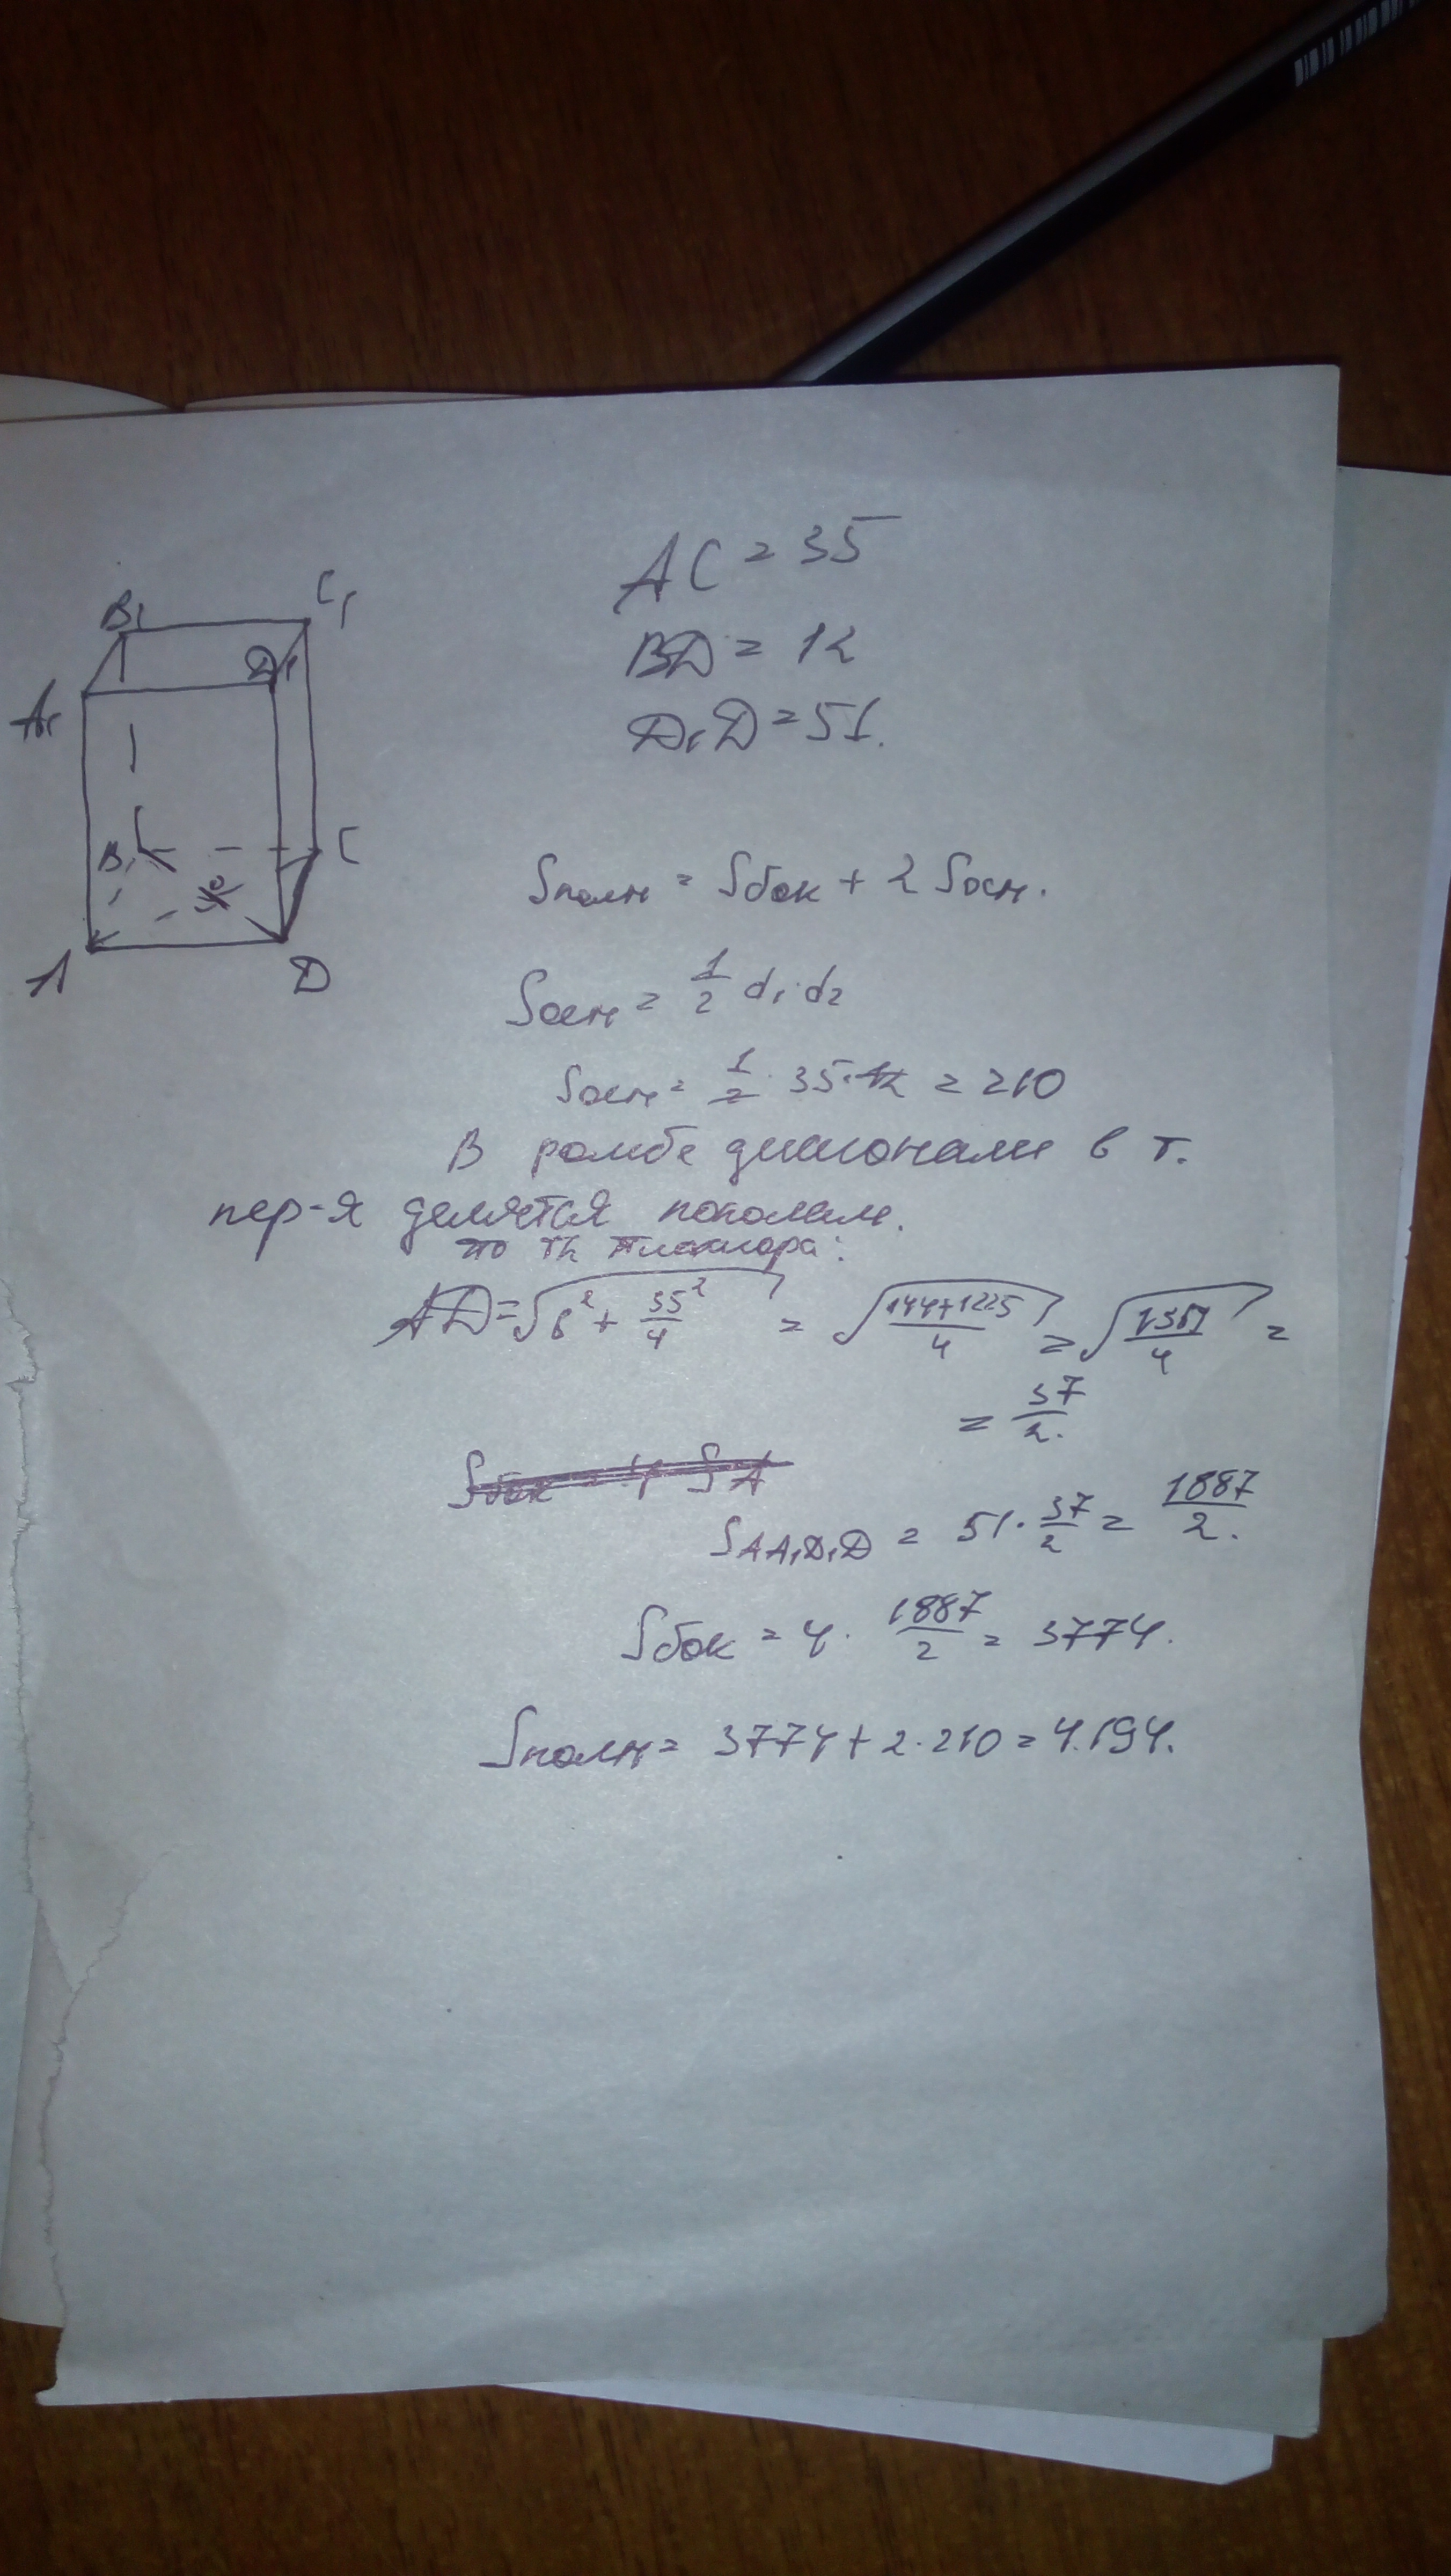 AC = 35
BD = 12
D₁D = 51.
B₁
C₁
D₁
A₁
B
C
O
A
D
Sполн = Sбок + 2 Sосн.
Sосн = 1/2 d₁·d₂
Sосн = 1/2 · 35·12 = 210
В ромбе диагонали в т.
пер-я делятся пополам.
по th Пифагора:
AD = √(6² + 35²/4) = √((144+1225)/4) = √(1369/4) =
= 37/2.
Sбок = 4 S A
SAA₁D₁D = 51 · 37/2 = 1887/2.
Sбок = 4 · 1887/2 = 3774.
Sполн = 3774 + 2·210 = 4194.